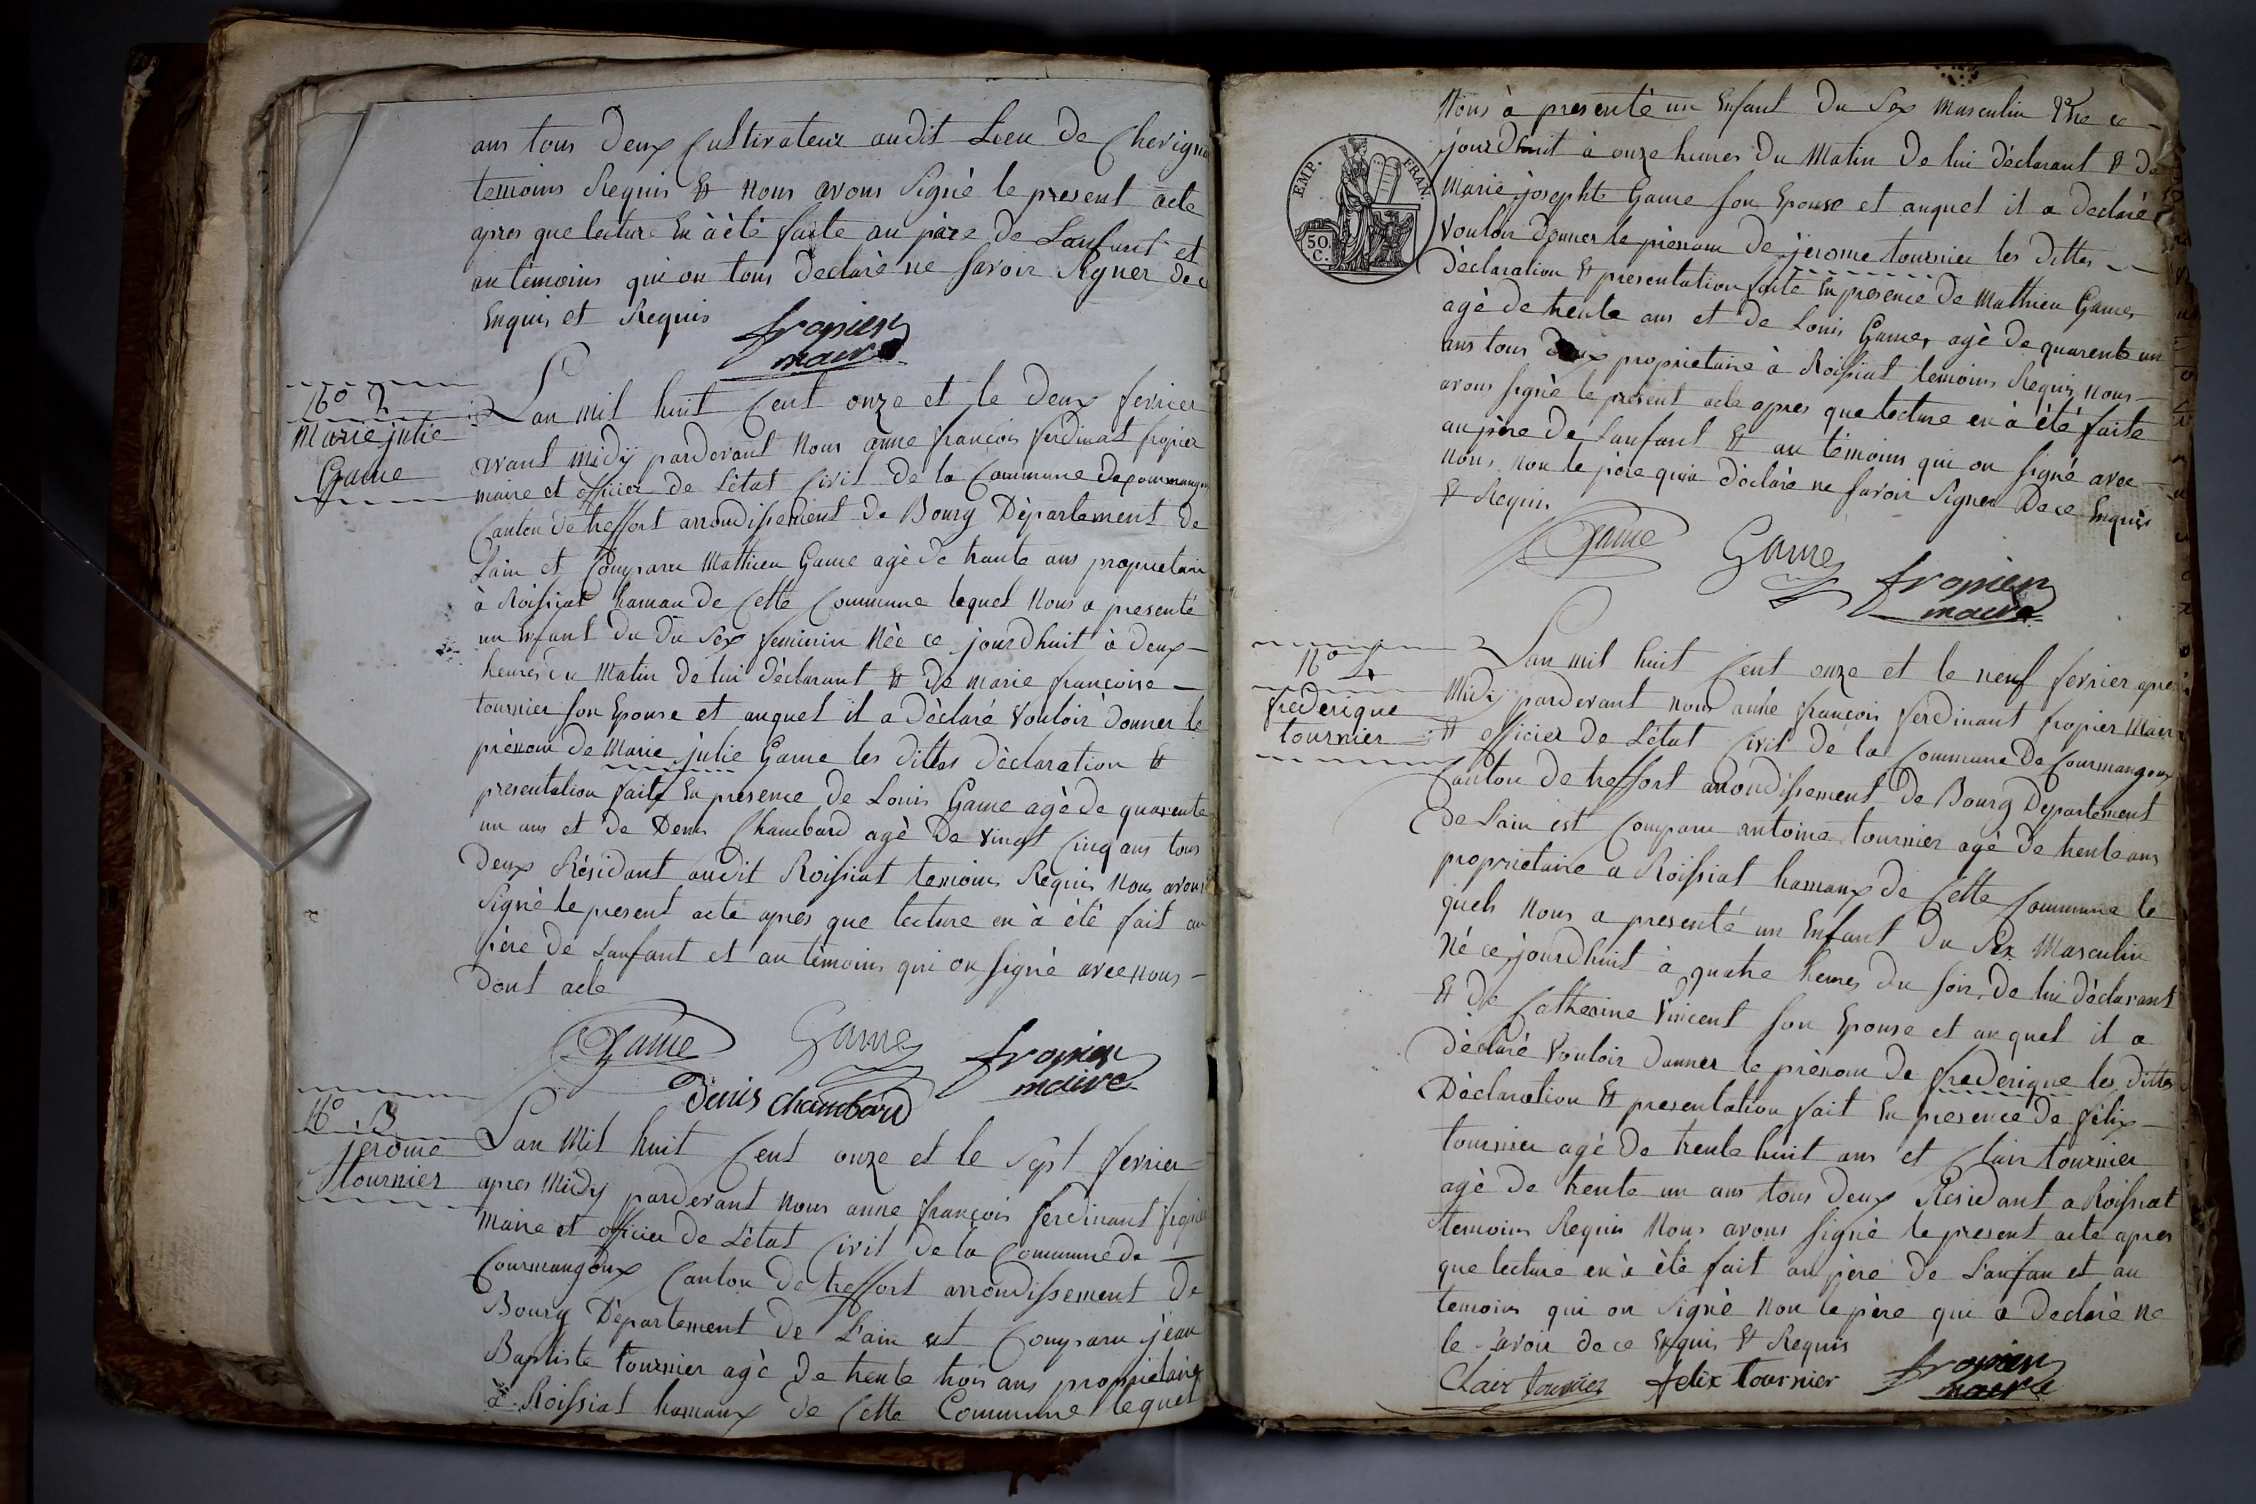 ans tous deux Cultivateur audit Lieu de Chevigna
temoins Requis Et nous avons Signé le present acte
apres que lecture En à été faite au père de Lanfant et
au témoins qui on tous declaré ne savoir Signer de ce
Enquis et Requis
fropier
maire
No 2
Marie julie
Game
Lan mil huit Cent onze et le deux fevrier
avant midÿ pardevant nous anne françois ferdinat fropier
maire et officier de Létat Civil de la Commune de courmangoux
Canton de treffort arrondissement de Bourg Département de
Lain et Comparu Mathieu Game agé de trante ans proprietaire
à Roissiat hamau de Cette Commune lequel nous a presenté
un Enfant du du Sex feminin Née ce jourdhuit à deux
heures du Matin de lui déclarant Et de marie françoise
tournier son Epouse et auquel il a déclaré Vouloir donner le
prénom de Marie julie Game les dittes déclaration Et
presentation faite En presence de Louis Game agé de quarente
un ans et de Denis Chambard agé de vingt Cinq ans tous
deux Résidant audit Roissiat temoins Requis nous avons
Signé le present acte apres que lecture en à été fait au
père de Lanfant et au témoins qui on signé avec nous
dont acte
Game Game fropier
maire
Denis Chambard
No 3
jerome
tournier
Lan Mil huit Cent onze et le Sept fevrier
apres Midÿ pardevant nous anne françois ferdinant fropier
Maire et officier de Létat Civil de la Commune de
Courmangoux Canton de treffort arrondissement de
Bourg Département de Lain et Comparu jean
Baptiste tournier agé de trente trois ans proprietaire
à Roissiat hamaux de Cette Commune lequel
Nous à presenté un Enfant du Sex Masculin Né ce
EMP. FRAN.
50 C.
jourdhuit à onze heures du Matin de lui déclarant Et de
Marie josephte Game son Epouse et auquel il a declaré
Vouloir donner le prénom de jerome tournier les dittes
déclaration Et presentation faite En presence de Mathieu Game
agé de trente ans et de Louis Game agé de quarente un
ans tous deux proprietaire à Roissiat temoins Requis nous
avons signé le present acte apres que lecture en à été faite
au père de Lanfant Et au témoins qui on signé avec
nous non le père qui a déclaré ne savoir Signer De ce Enquis
Et Requis
Game Game fropier
maire
No 4
frederique
tournier
Lan mil huit Cent onze et le neuf fevrier apres
Midÿ pardevant nous anne françois ferdinant fropier Maire
Et officier de Létat Civil de la Commune De Courmangoux
Canton de treffort arrondissement de Bourg Departement
de Lain est Comparu antoine tournier agé de trente ans
proprietaire a Roissiat hamaux de Cette Commune le
quels nous a presenté un Enfant du Sex Masculin
Né ce jourdhuit à quatre heures du soir de lui déclarant
Et de Catherine Vincent son Epouse et auquel il a
déclaré Vouloir donner le prénom de frederique les dittes
Déclaration Et presentation fait En presence de félix
tournier agé de trente huit ans et Clair tournier
agé de trente un ans tous deux Residant a Roissiat
temoins Requis nous avons signé le present acte apres
que lecture en à été fait au père de Lanfan et au
temoins qui on Signé non le père qui a declaré ne
le savoir de ce Enquis Et Requis
Clair tournier felix tournier fropier
maire